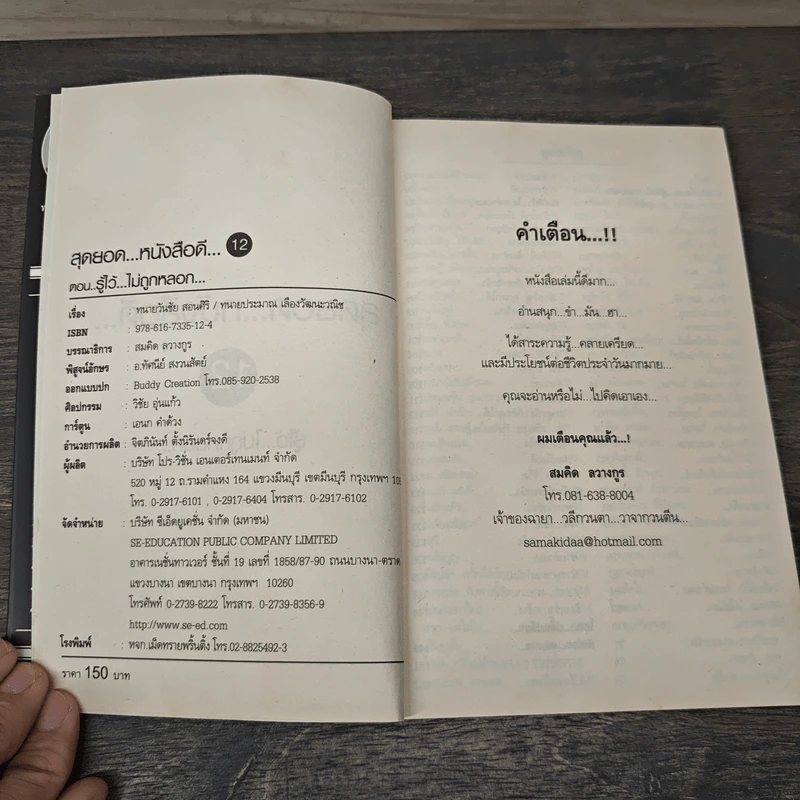 สุดยอด...หนังสือดี... 12
ตอน..รู้ไว้...ไม่ถูกหลอก...
เรื่อง : ทนายวันชัย สอนศิริ / ทนายประมาณ เลืองวัฒนะวณิช
ISBN : 978-616-7335-12-4
บรรณาธิการ : สมคิด ลวางกูร
พิสูจน์อักษร : อ.ทัศนีย์ สงวนสัตย์
ออกแบบปก : Buddy Creation โทร.085-920-2538
ศิลปกรรม : วิชัย อุ่นแก้ว
การ์ตูน : เอนก คำด้วง
อำนวยการผลิต : จิตภินันท์ ตั้งนิรันดร์จงดี
ผู้ผลิต : บริษัท โปร-วิชั่น เอนเตอร์เทนเมนท์ จำกัด
520 หมู่ 12 ถ.รามคำแหง 164 แขวงมีนบุรี เขตมีนบุรี กรุงเทพฯ
โทร. 0-2917-6101 , 0-2917-6404 โทรสาร. 0-2917-6102
จัดจำหน่าย : บริษัท ซีเอ็ดยูเคชั่น จำกัด (มหาชน)
SE-EDUCATION PUBLIC COMPANY LIMITED
อาคารเนชั่นทาวเวอร์ ชั้นที่ 19 เลขที่ 1858/87-90 ถนนบางนา-ตราด
แขวงบางนา เขตบางนา กรุงเทพฯ 10260
โทรศัพท์ 0-2739-8222 โทรสาร. 0-2739-8356-9
http://www.se-ed.com
โรงพิมพ์ : หจก.เม็ดทรายพริ้นติ้ง โทร.02-8825492-3
ราคา 150 บาท
คำเตือน...!!
หนังสือเล่มนี้ดีมาก...
อ่านสนุก...ขำ...มัน...ฮา...
ได้สาระความรู้...คลายเครียด...
และมีประโยชน์ต่อชีวิตประจำวันมากมาย...
คุณจะอ่านหรือไม่...ไปคิดเอาเอง...
ผมเตือนคุณแล้ว...!
สมคิด ลวางกูร
โทร.081-638-8004
เจ้าของฉายา...วลีกวนตา...วาจากวนตีน...
samakidaa@hotmail.com